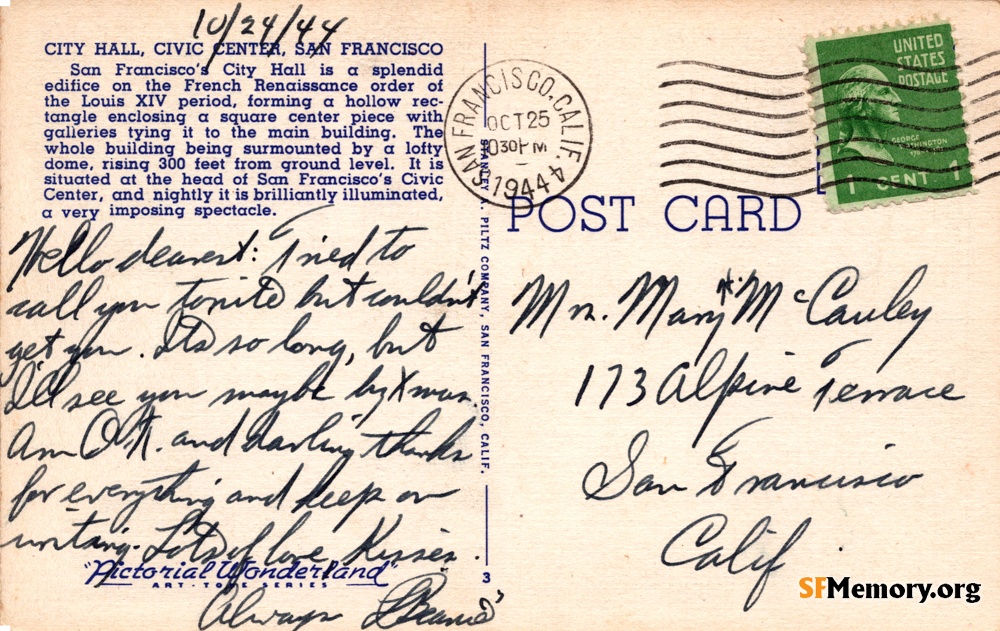 10/24/44
CITY HALL, CIVIC CENTER, SAN FRANCISCO
San Francisco's City Hall is a splendid
edifice on the French Renaissance order of
the Louis XIV period, forming a hollow rec-
tangle enclosing a square center piece with
galleries tying it to the main building. The
whole building being surmounted by a lofty
dome, rising 300 feet from ground level. It is
situated at the head of San Francisco's Civic
Center, and nightly it is brilliantly illuminated,
a very imposing spectacle.
Hello dearest: Tried to
call you tonite but couldn't
get you. Its so long, but
I'll see you maybe by Xmas.
Am O.K. and darling thanks
for everything and keep on
writing. Lots of love, Kisses.
Always
"Pictorial Wonderland"
ART-TONE SERIES
3
PILTZ COMPANY, SAN FRANCISCO, CALIF.
SAN FRANCISCO, CALIF.
OCT 25
1030 PM
1944
UNITED
STATES
POSTAGE
GEORGE
WASHINGTON
1 CENT 1
POST CARD
Mrs. Mary McCauley
173 Alpine Terrace
San Francisco
Calif
SFMemory.org